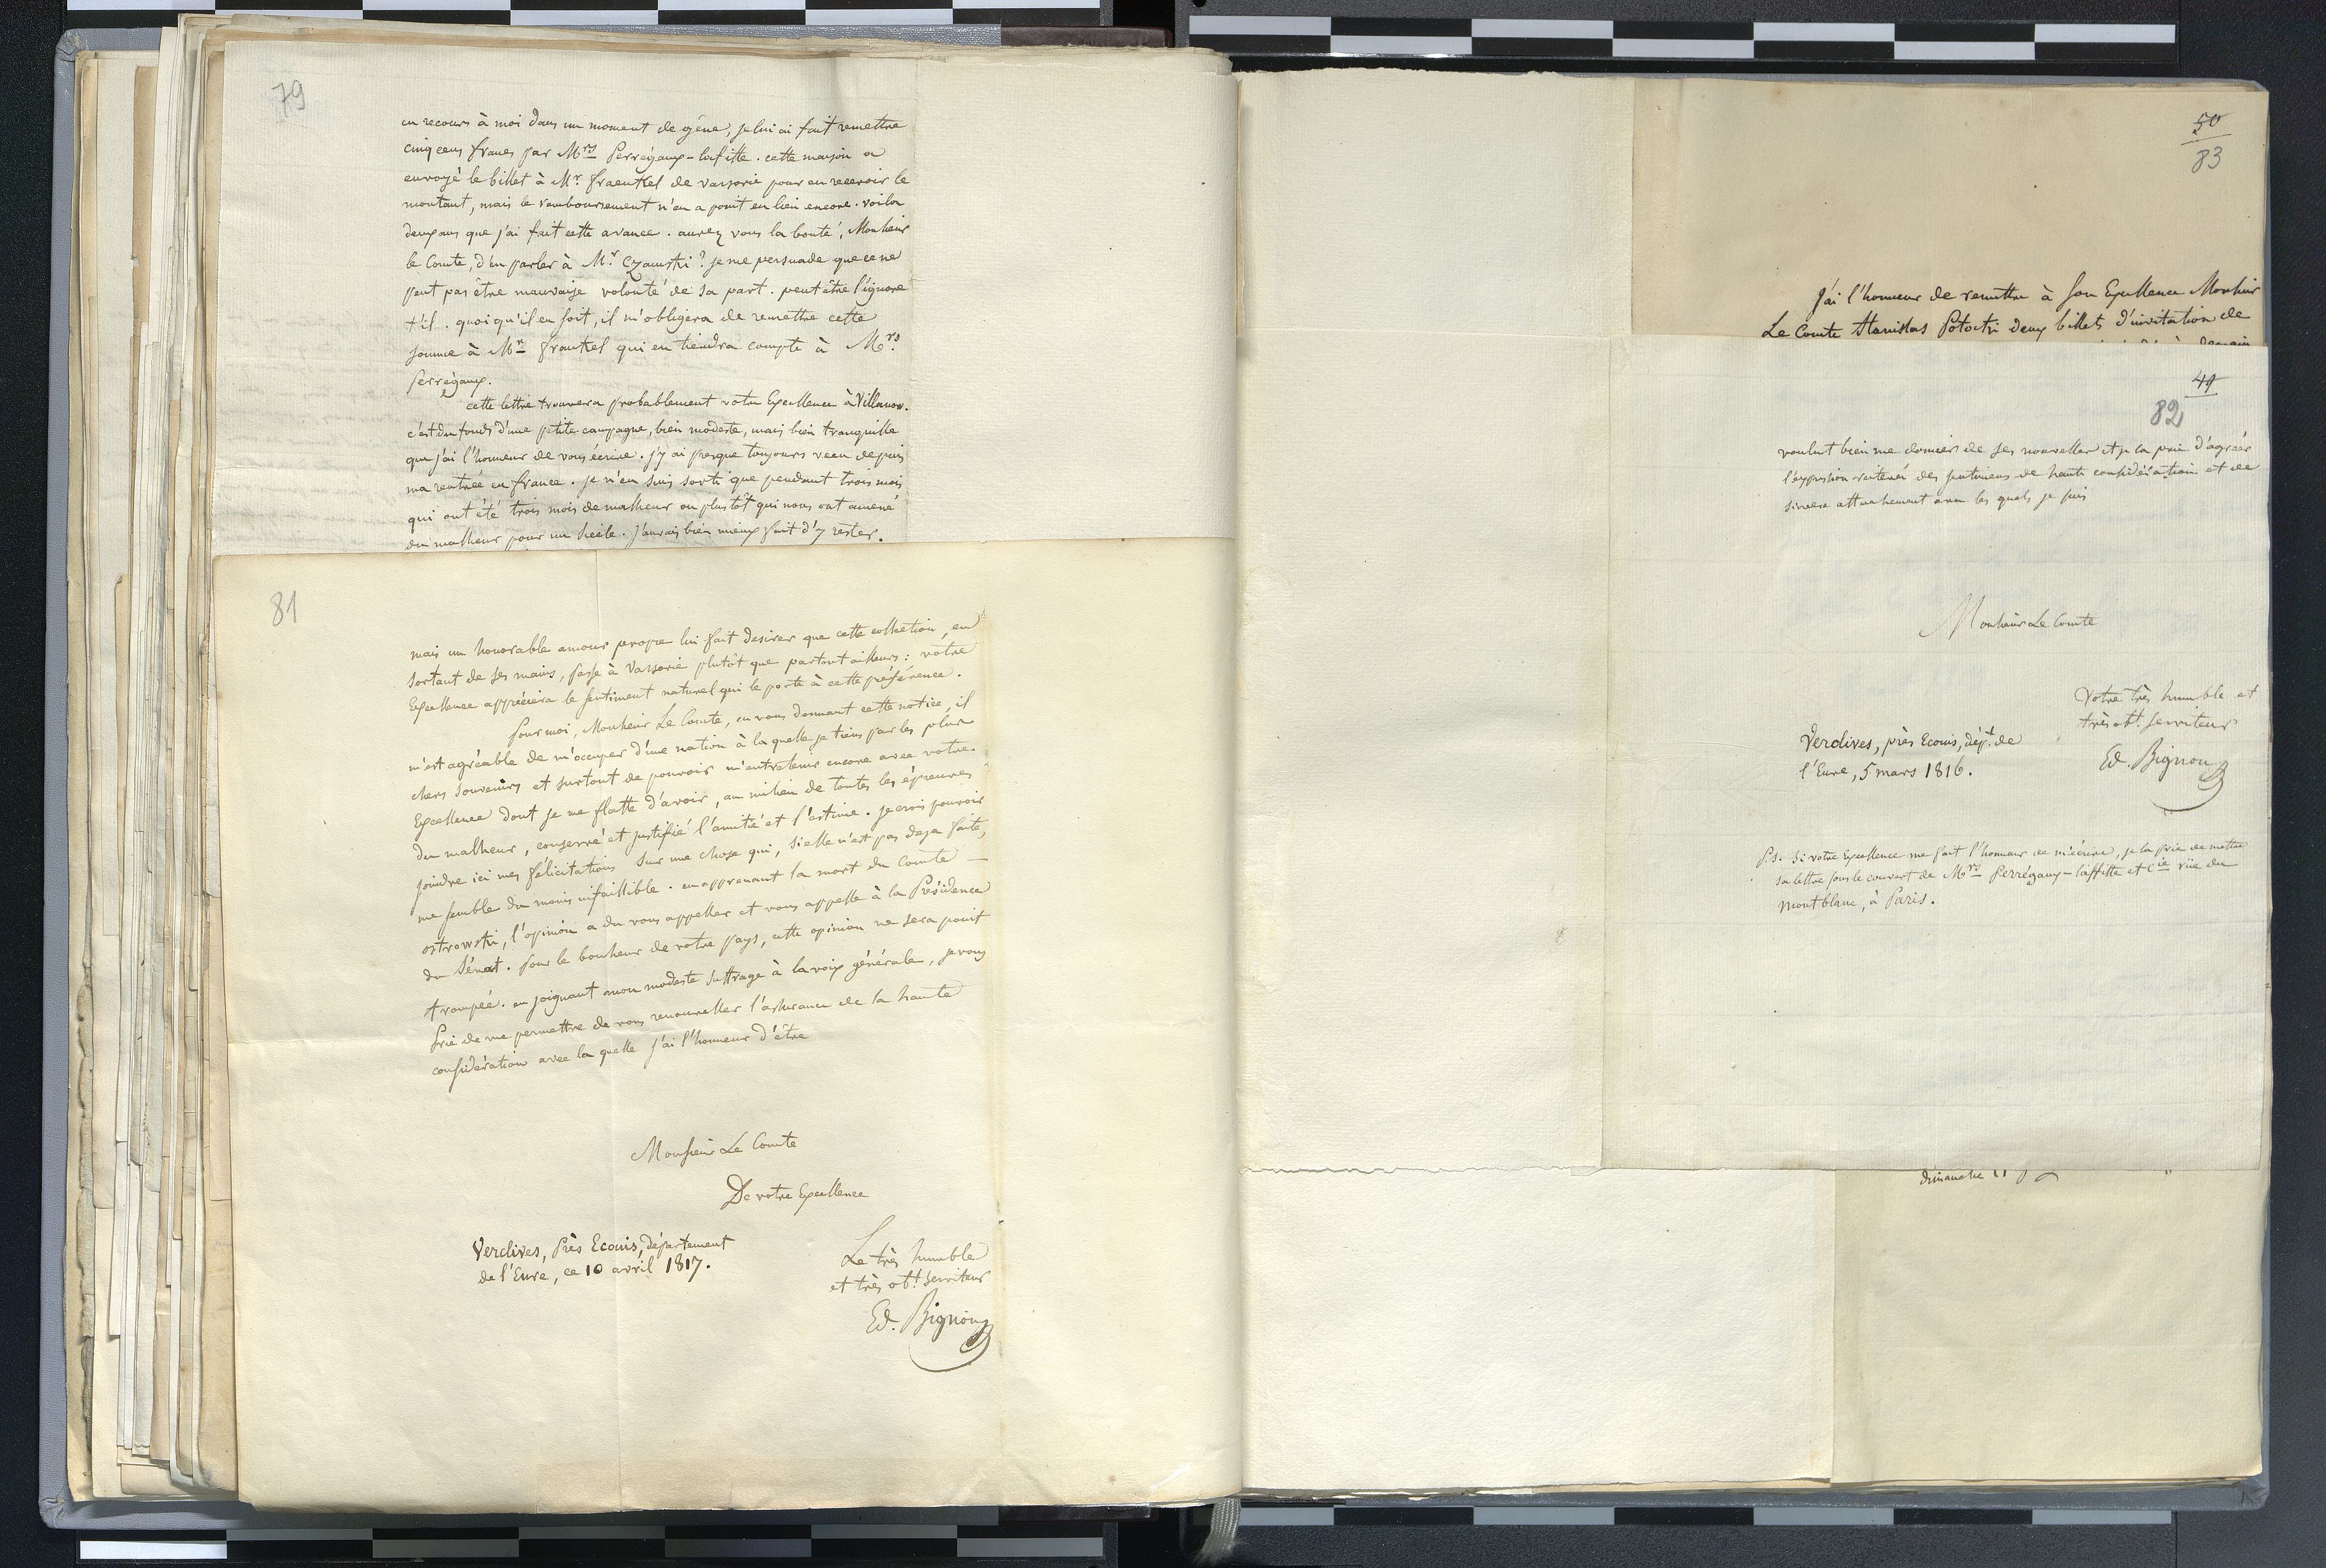 79
eu recours à moi dans un moment de gêne, je lui ai fait remettre
cinq cens francs par Mrs Perregaux-lafitte. cette maison a
envoyé le billet à Mr. fraenkel de varsovie pour en recevoir le
montant, mais le remboursement n'en a point eu lieu encore. voila
deux ans que j'ai fait cette avance. aurez vous la bonté, Monsieur
le Comte, d'en parler à Mr. Czamski? je me persuade que ce ne
peut pas être mauvaise volonté de sa part. peut être l'ignore
t'il. quoi qu'il en soit, il m'obligera de remettre cette
somme à Mr fraenkel qui en tiendra compte à Mrs.
perregaux.
cette lettre trouvera probablement votre Excellence à Villanov.
c'est du fonds d'une petite campagne, bien modeste, mais bien tranquille
que j'ai l'honneur de vous écrire. j'y ai presque toujours vecu depuis
ma rentrée en france. je n'en suis sorti que pendant trois mois
qui ont été trois mois de malheur ou plustôt qui nous ont amené
du malheur pour un siecle. j'aurais bien mieux fait d'y rester.
81
mais un honorable amour propre lui fait desirer que cette collection, en
sortant de ses mains, passe à Varsovie plutôt que partout ailleurs: votre
Excellence appréciera le sentiment naturel qui le porte à cette préférence.
pour moi, Monsieur Le Comte, en vous donnant cette notice, il
m'est agréable de m'occuper d'une nation à la quelle je tiens par les plus
chers souvenirs et surtout de pouvoir m'entretenir encore avec votre
Excellence dont je me flatte d'avoir, au milieu de toutes les épreuves
du malheur, conservé et justifié l'amitié et l'estime. je crois pouvoir
joindre ici mes félicitations sur une chose qui, si elle n'est pas deja faite,
me semble du moins infaillible. en apprenant la mort du Comte
ostrowski, l'opinion a du vous appeller et vous appelle à la Présidence
du Sénat. pour le bonheur de votre pays, cette opinion ne sera point
trompée. en joignant mon modeste suffrage à la voix générale, je vous
prie de me permettre de vous renouveller l'assurance de la haute
considération avec la quelle j'ai l'honneur d'être
Monsieur Le Comte
De votre Excellence
Verclives, près Ecouis, département
de l'Eure, ce 10 avril 1817.
Le très humble
et très obt. serviteur
Ed. Bignon
50
83
j'ai l'honneur de remettre à son Excellence Monsieur
Le Comte Stanislas Potocki deux billets d'invitation de
49
82
voulut bien me donner de ses nouvelles et je la prie d'agréer
l'expression réitérée des sentimens de haute considération et de
sincere attachement avec les quels je suis
Monsieur Le Comte
Votre très humble et
très obt. serviteur
Ed. Bignon
Verclives, près Ecouis, dépt. de
l'Eure, 5 mars 1816.
p.s. Si votre Excellence me fait l'honneur de m'écrire, je la prie de mettre
sa lettre sous le couvert de Mrs Perregaux-laffitte et Cie rüe du
montblanc, à Paris.
dimanche